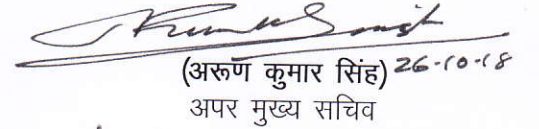 (अरूण कुमार सिंह) 26-10-18
अपर मुख्य सचिव